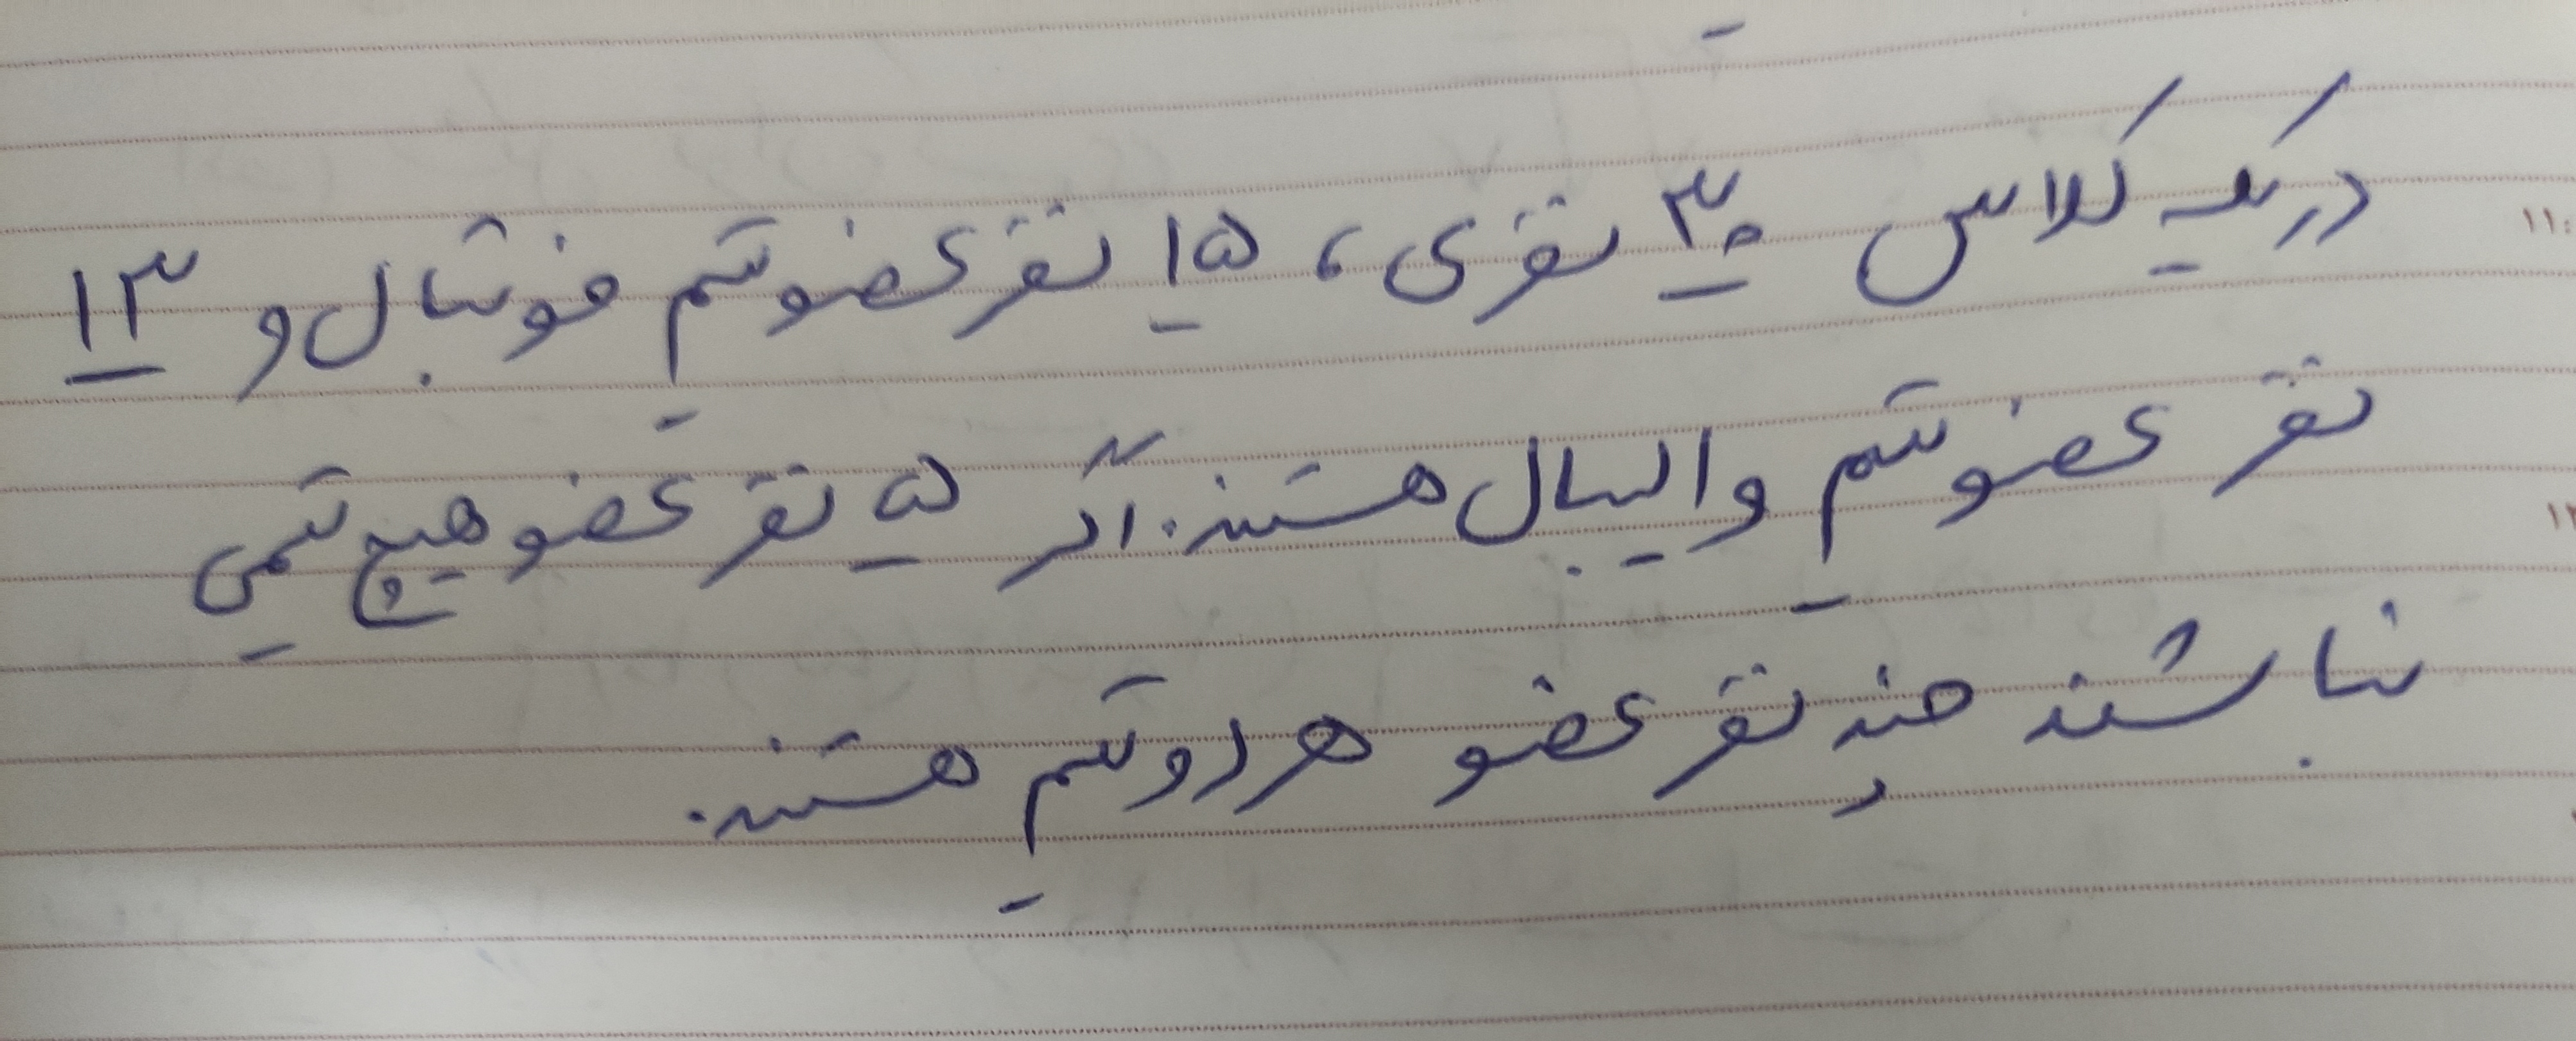 در یک کلاس ۳۰ نفری، ۱۵ نفر عضو تیم فوتبال و ۱۳
نفر عضو تیم والیبال هستند. اگر ۵ نفر عضو هیچ تیمی
نباشند چند نفر عضو هر دو تیم هستند.